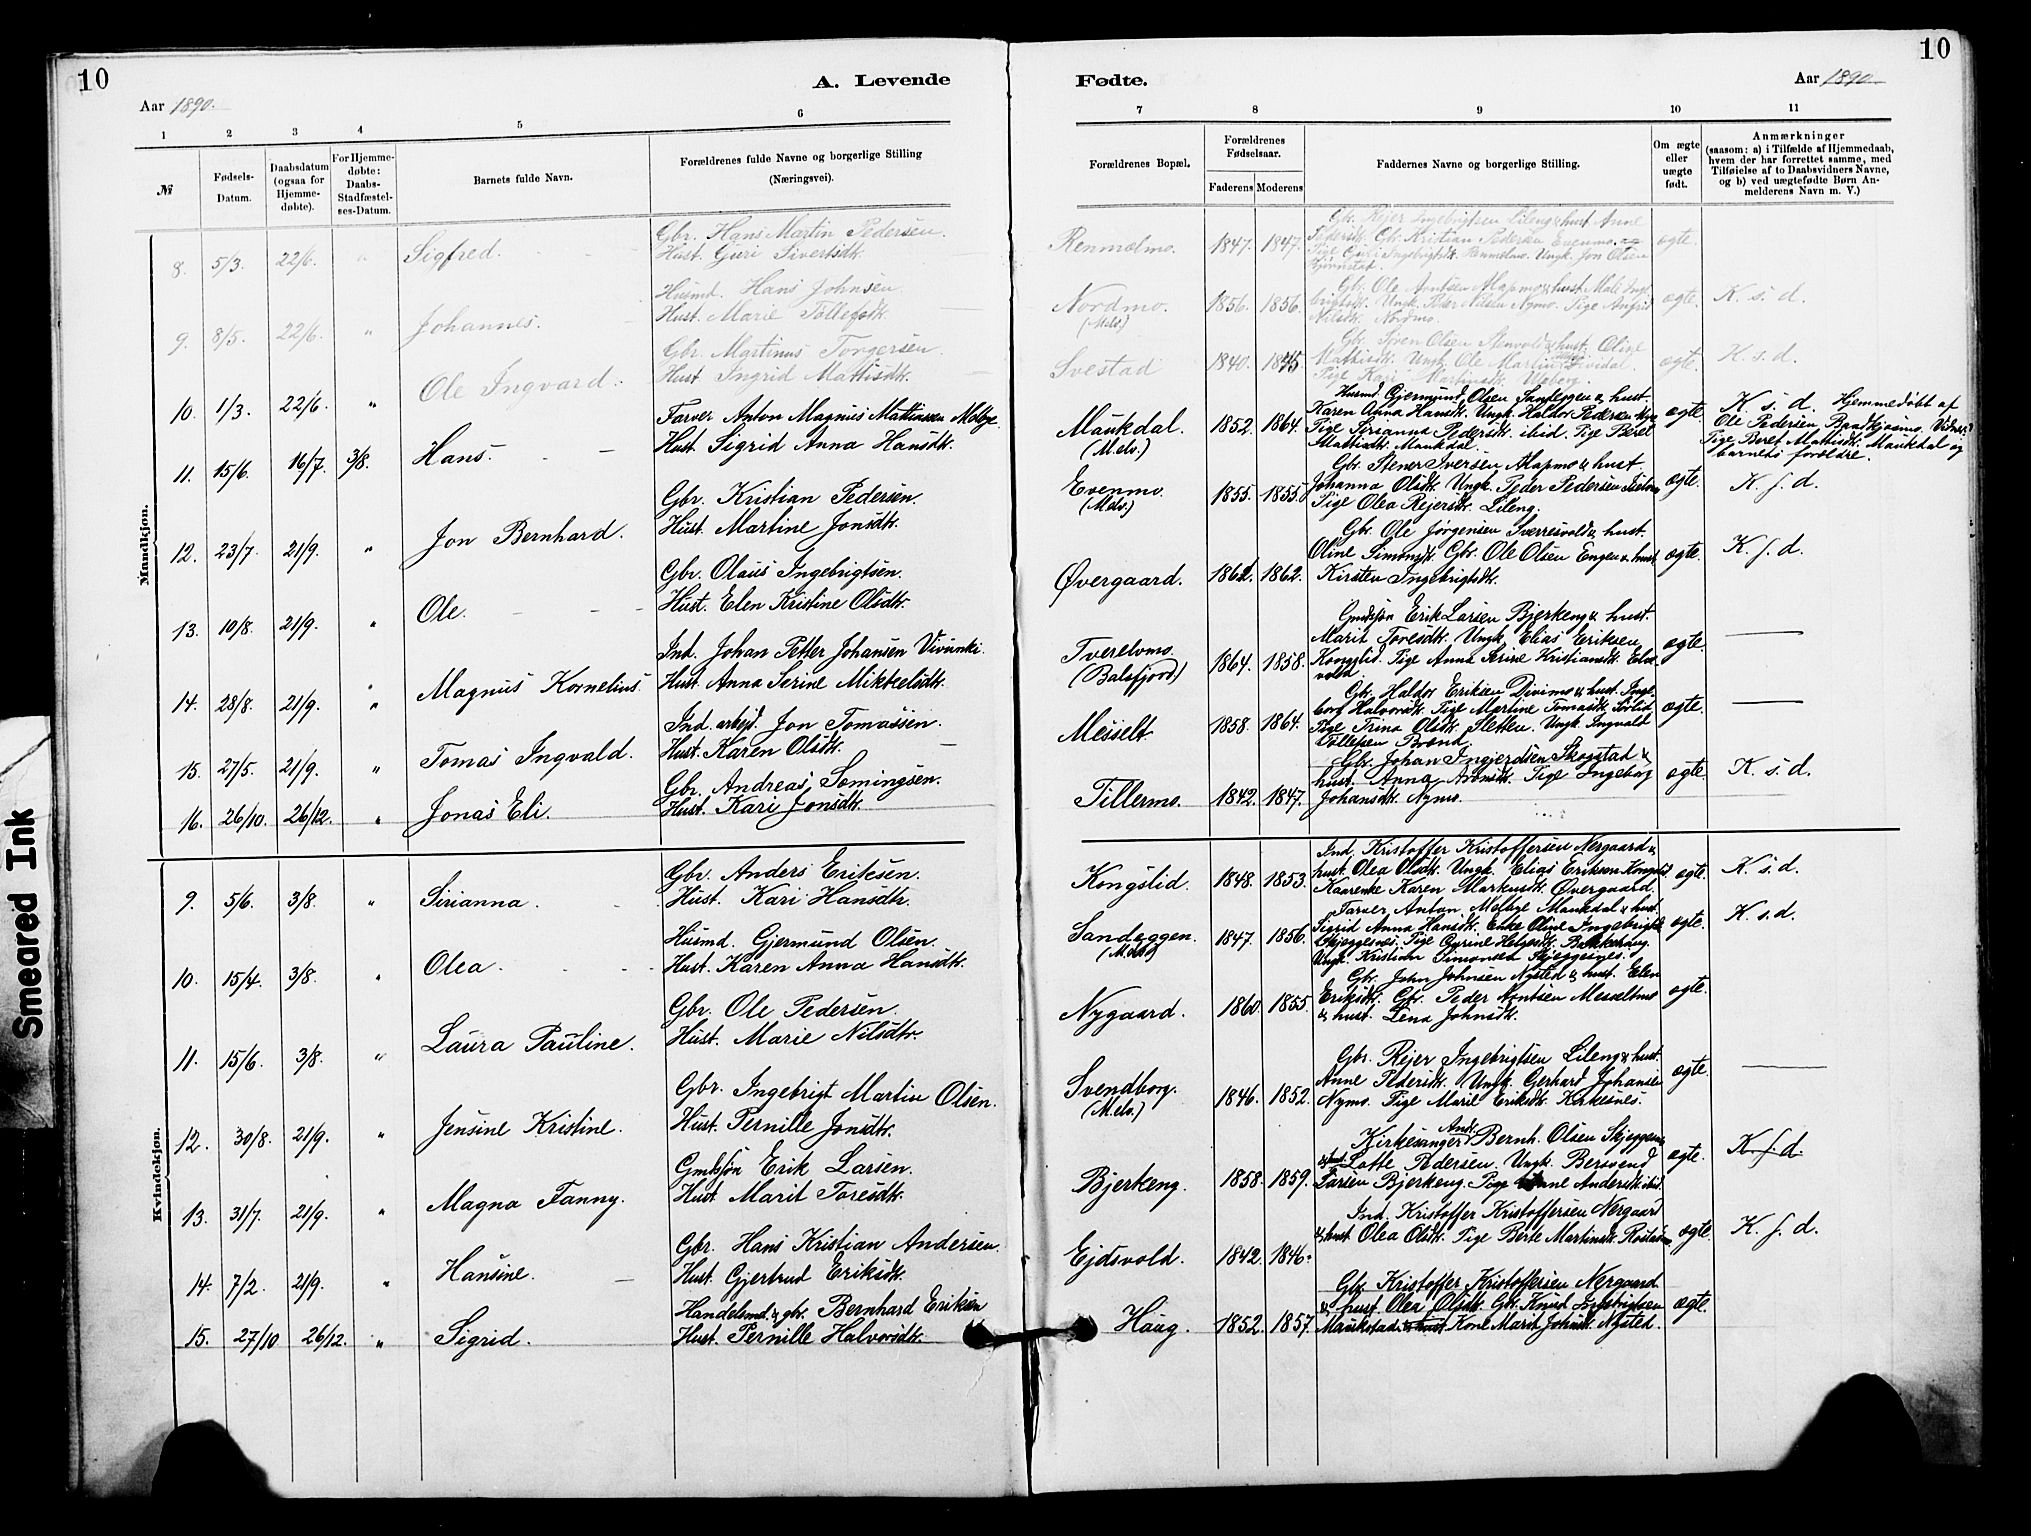 10
A. Levende
Aar 1890.
1 2 3 4 5 6
№
Fødsels-
Datum.
Daabsdatum
(ogsaa for
Hjemme-
døbte).
For Hjemme-
døbte:
Daabs-
Stadfæstel-
ses-Datum.
Barnets fulde Navn.
Forældrenes fulde Navne og borgerlige Stilling
(Næringsvei).
Mandkjøn.
Gbr. Hans Martin Pedersen.
8. 5/3. 22/6. " Sigfred. Hust. Guri Sivertsdtr.
Husmd. Hans Johnsen
9. 8/5. 22/6. " Johannes. Hust. Marie Tollefsdtr.
Gbr. Martinus Torgersen.
10. 1/3. 22/6. " Ole Ingvard. Hust. Ingrid Mattisdtr.
Farver Anton Magnus Mattiassen Melbye.
11. 15/6. 16/7. 3/8. Hans. Hust. Sigrid Anna Hansdtr.
Gbr. Kristian Pedersen.
12. 23/7. 21/9. " Jon Bernhard. Hust. Martine Jonsdtr.
Gbr. Olaus Ingebrigtsen.
13. 10/8. 21/9. " Ole. Hust. Elen Kristine Olsdtr.
Ind. Johan Petter Johansen Vivunki.
14. 28/8. 21/9. " Magnus Kornelius. Hust. Anna Serine Mikkelsdtr.
Ind. arbejd. Jon Tomassen.
15. 27/5. 21/9. " Tomas Ingvald. Hust. Karen Olsdtr.
Gbr. Andreas Somingsen.
16. 26/10. 26/12. " Jonas Eli. Hust. Kari Jonsdtr.
Kvindekjøn.
Gbr. Anders Eriksen.
9. 5/6. 3/8. " Sirianna. Hust. Kari Hansdtr.
Husmd. Gjermund Olsen.
10. 15/4. 3/8. " Olea. Hust. Karen Anna Hansdtr.
Gbr. Ole Pedersen.
11. 15/6. 3/8. " Laura Pauline. Hust. Marie Nilsdtr.
Gbr. Ingebrigt Martin Olsen.
12. 30/8. 21/9. " Jensine Kristine. Hust. Pernille Jonsdtr.
Gmlssøn Erik Larsen.
13. 31/7. 21/9. " Magna Fanny. Hust. Marit Toresdtr.
Gbr. Hans Kristian Andersen.
14. 7/2. 21/9. " Hansine. Hust. Gjertrud Eriksdtr.
Handelsmd. & gbr. Bernhard Eriksen
15. 27/10 26/12. " Sigrid. Hust. Pernille Halvorsdtr.
10
Fødte.
Aar 1890
7 8 9 10 11
Forældrenes Bopæl.
Forældrenes
Fødselsaar.
Faderens Moderens
Faddernes Navne og borgerlige Stilling.
Om ægte
eller
uægte
født.
Anmærkninger
(saasom: a) i Tilfælde af Hjemmedaab,
hvem der har forrettet samme, med
Tilføielse af to Daabsvidners Navne,
og b) ved uægtefødte Børn An-
melderens Navn m. V.)
Gbr. Rejer Ingebrigtsen Lileng & hust. Anne
Renmælmo. 1847. 1847. Pedersdtr. Gbr. Kristian Pedersen Evenmo. ægte.
Pige Guri Ingebrigtsdtr. Renmælmo. Ungk. Jon Olsen
Bjørnstad.
Gbr. Ole Arntsen Alapmo & hust. Mali Inge-
Nordmo. (Melv.) 1856. 1856. brigtsdtr. Ungk. Peder Nilsen Nymo. Pige Anfrid ægte. K. s. d.
Nilsdtr. Nordmo.
Gbr. Søren Olsen Stenvold & hust. Oline
Svestad 1840. 1845 Mathisdtr. Ungk. Ole Martin Dividal. ægte. K. s. d.
Pige Kari Martinsdtr.
Husmd. Gjermund Olsen Sandeggen & hust.
Maukdal. (Melv.) 1852. 1864. Karen Anna Hansdtr. Ungk. Haldor Pedersen ægte. K. s. d. Hjemmedøbt af
Pige Sirianna Pedersdtr. ibid. Pige Beret Ole Pedersen Vidner:
Mattisdtr. Maukdal. Pige Beret Mattisdtr. Maukdal og
barnets forældre.
Gbr. Stener Iversen Alapmo & hust.
Evenmo. (Melv.) 1855. 1855. Johanna Olsdtr. Ungk. Peder Pedersen ægte. K. s. d.
Pige Olea Rejersdtr. Lileng.
Gbr. Ole Jørgensen Sverresvold & hust.
Øvergaard. 1862. 1862. Oline Simonsdtr. Gbr. Ole Olsen Engen & hust. ægte. K. s. d.
Kirsten Ingebrigtsdtr.
Gmlssøn Erik Larsen Bjerkeng & hust.
Tverelvmo. (Balsfjord) 1864. 1858. Marit Toresdtr. Ungk. Elias Eriksen ægte.
Kongslid. Pige Anna Serine Kristiansdtr. Elve-
vold.
Gbr. Haldor Eriksen Divimo & hust. Inge-
Messelt. 1858. 1864. borg Halvorsdtr. Pige Martine Tomasdtr. Sørlid. ægte.
Pige Trina Olsdtr. Sletten. Ungk. Ingvald
Tollefsen Brænd.
Gbr. Johan Ingjerdsen Skogstad &
Tillermo. 1842. 1847. hust. Anna Aronsdtr. Pige Ingeborg ægte. K. s. d.
Johansdtr. Nymo.
Ind. Kristoffer Kristoffersen Nergaard &
Kongslid. 1848. 1853. hust. Olea Olsdtr. Ungk. Elias Eriksen Kongslid. ægte. K. s. d.
Kaarenke Karen Markusdtr. Øvergaard.
Farver Anton Melbye Maukdal & hust.
Sandeggen. (Melv.) 1847. 1856. Sigrid Anna Hansdtr. Enke Oline Ingebrigtsdtr. ægte. K. s. d.
Skjeggesnes. Pige Gurine Helgesdtr. Bakkehaug.
Ungk. Kristian Simonsen Skjeggesnes.
Gbr. John Johnsen Nysted & hust. Elen
Nygaard. 1860. 1855. Eriksdtr. Gbr. Peder Arntsen Messeltmo ægte.
& hust. Lena Johnsdtr.
Gbr. Rejer Ingebrigtsen Lileng & hust.
Svendborg. (Melv.) 1846. 1852. Anne Pedersdtr. Ungk. Gerhard Johansen ægte.
Nymo. Pige Marie Eriksdtr. Kirkesnes.
Kirkesanger Andr. Bernh. Olsen Skjeggesnes
Bjerkeng. 1858. 1859. & hust. Lotte Pedersen. Ungk. Bersvend ægte. K. s. d.
Larsen Bjerkeng. Pige Anne Andersdtr. ibid.
Ind. Kristoffer Kristoffersen Nergaard
Ejdsvold. 1842. 1846. & hust. Olea Olsdtr. Pige Berte Martinsdtr. ægte. K. s. d.
Gbr. Kristoffer Kristoffersen Nergaard
Haug. 1852. 1857. & hust. Olea Olsdtr. Gbr. Knud Ingebrigtsen ægte.
Maukstad & hust. Kone Marit Johnsdtr. Nysted.
Smeared Ink